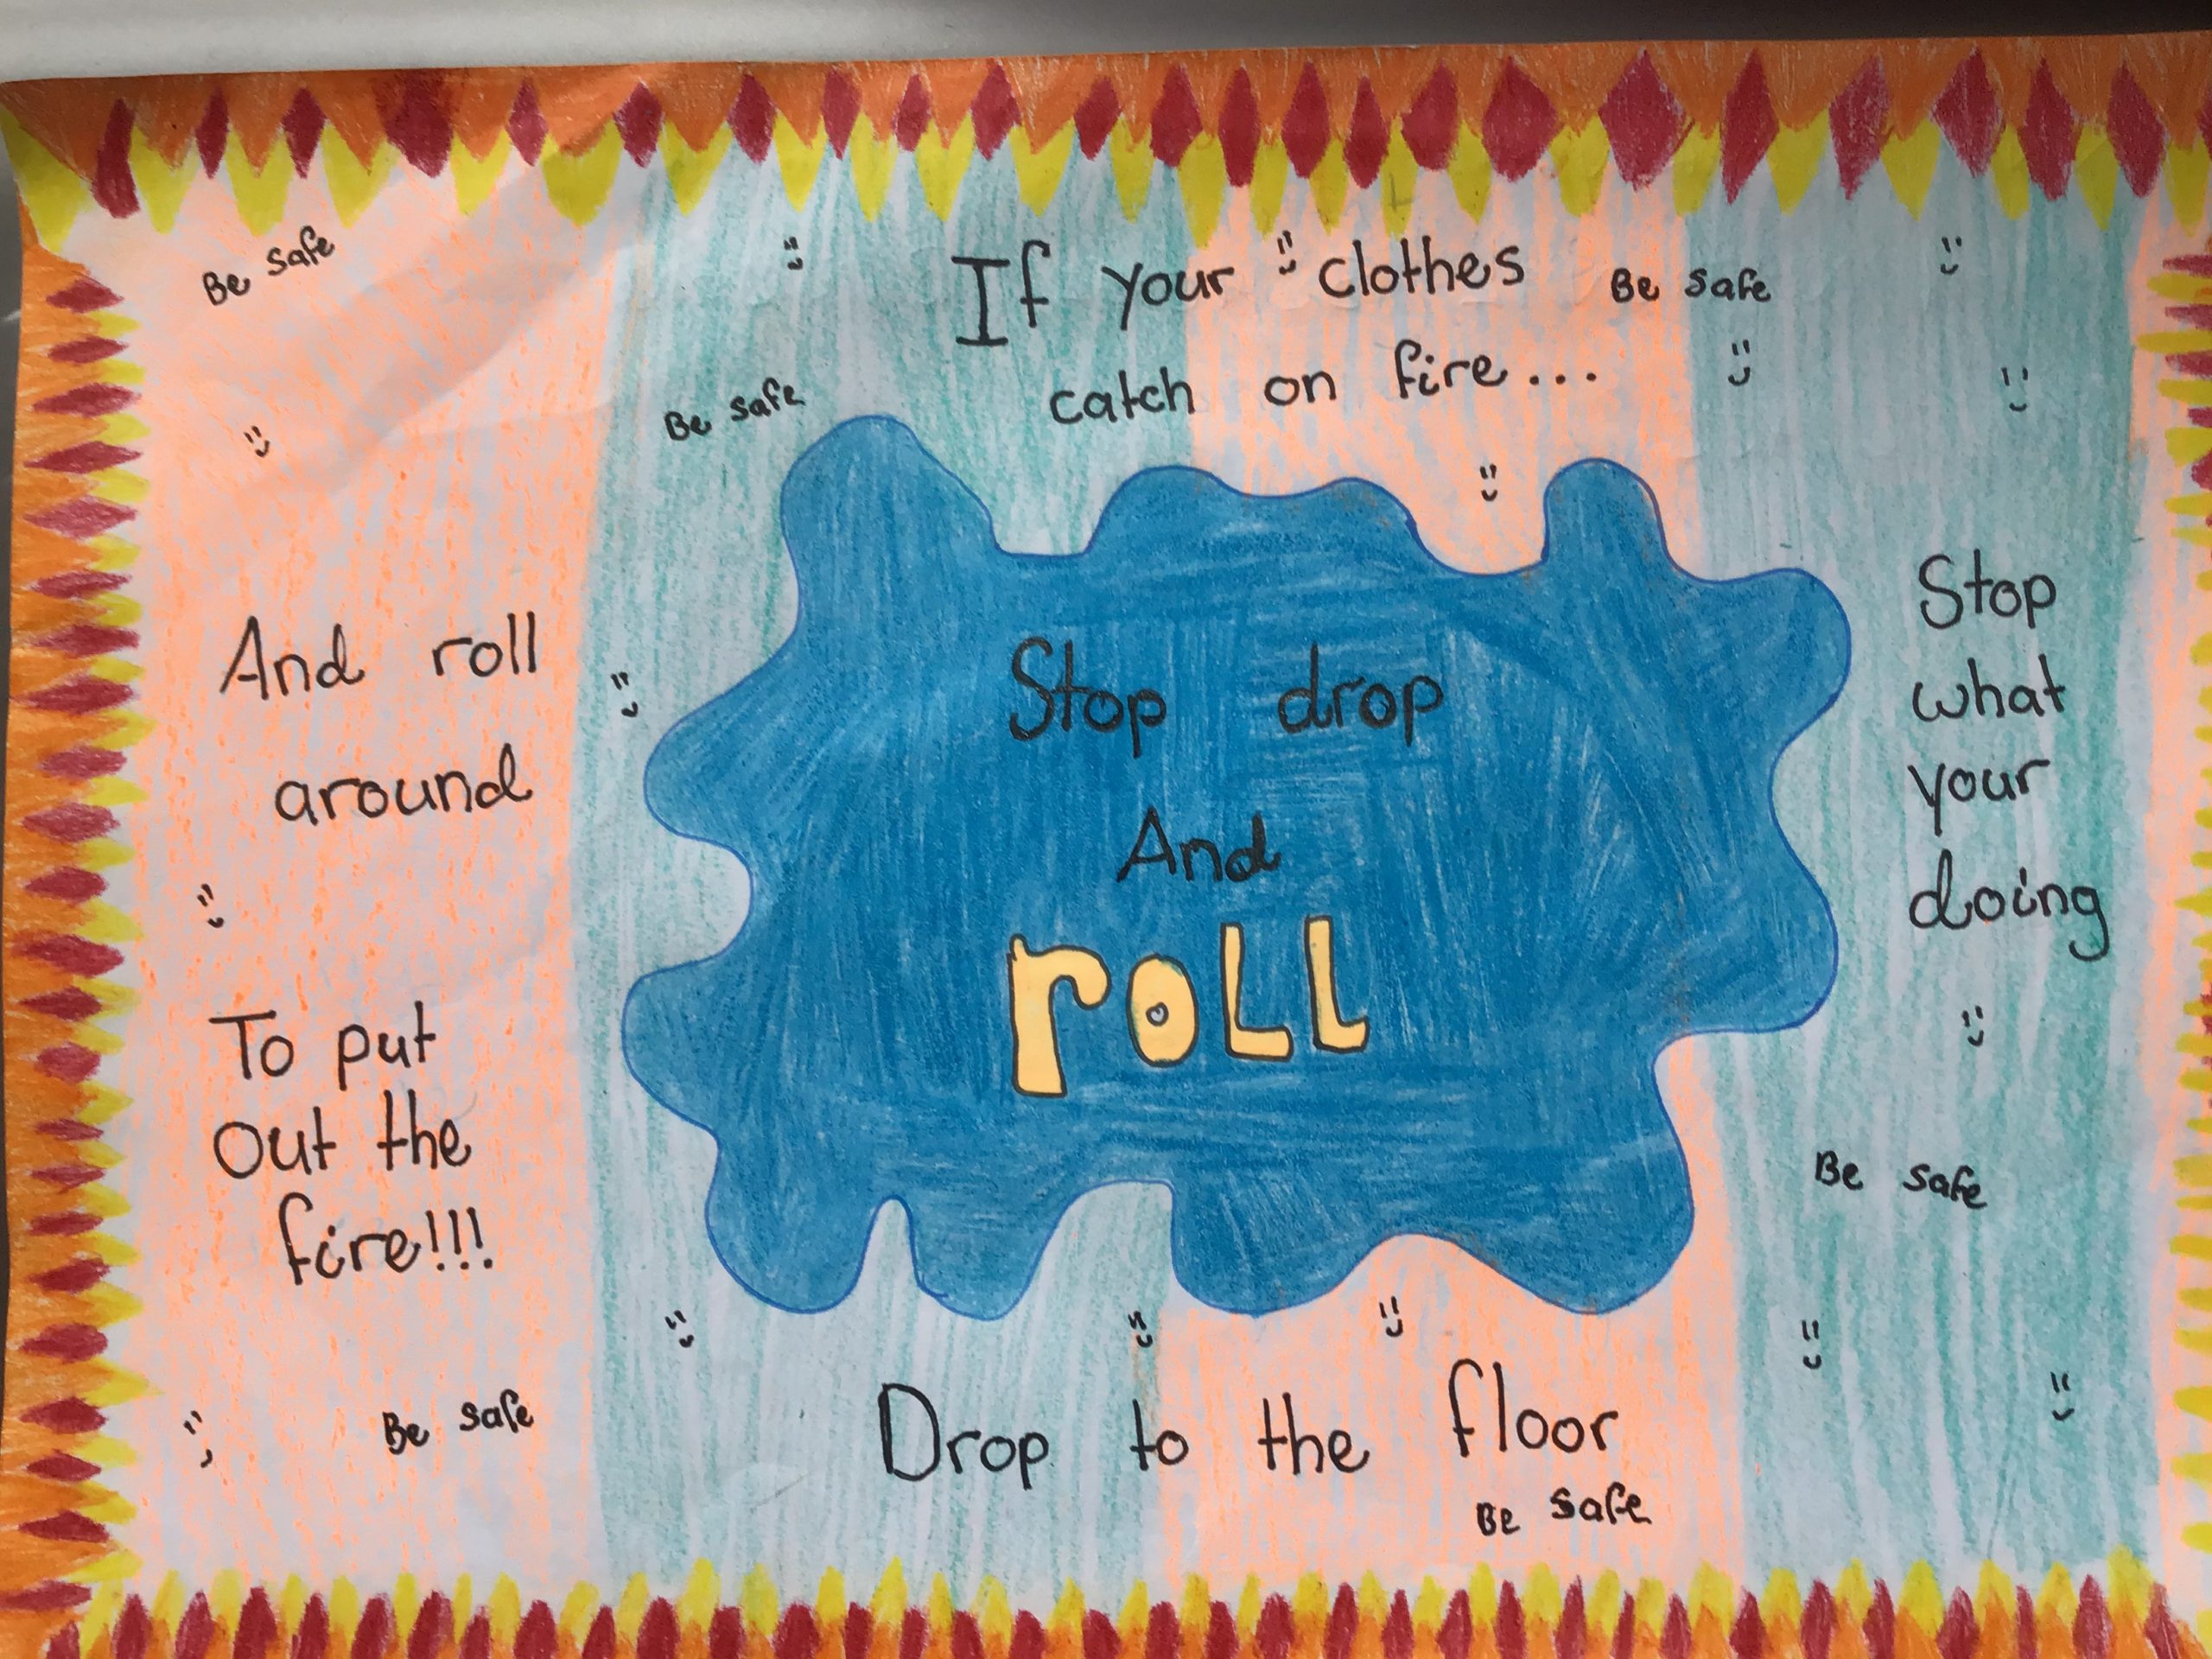 Be safe
If your clothes
Be safe
catch on fire...
Be safe
Stop
what
your
doing
Stop drop
And
roll
And roll
around
To put
out the
fire!!!
Be safe
Drop to the floor
Be safe
Be safe